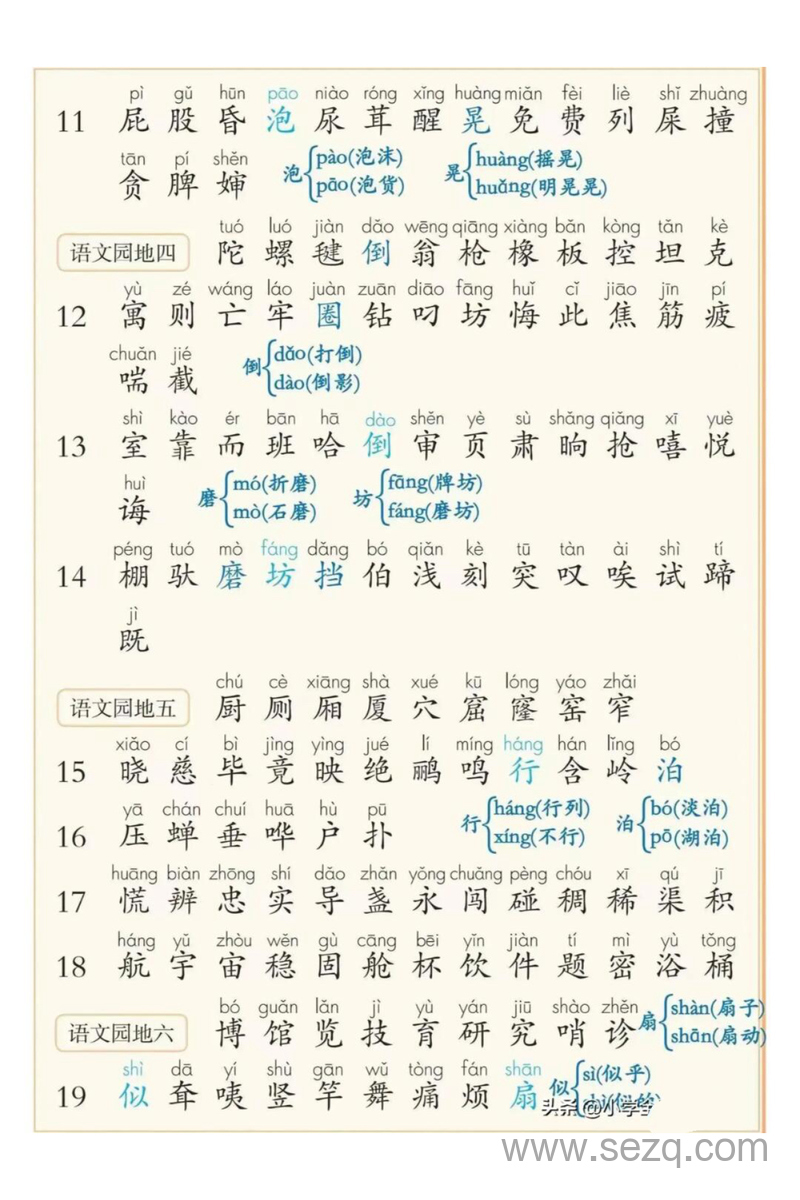 pì gǔ hūn pāo niào róng xǐng huàng miǎn fèi liè shǐ zhuàng
11 屁 股 昏 泡 尿 茸 醒 晃 免 费 列 屎 撞
tān pí shěn
贪 脾 婶
泡 pào(泡沫) pāo(泡货)
晃 huàng(摇晃) huǎng(明晃晃)
tuó luó jiàn dǎo wēng qiāng xiàng bǎn kòng tǎn kè
语文园地四 陀 螺 毽 倒 翁 枪 橡 板 控 坦 克
yù zé wáng láo juàn zuān diāo fāng huǐ cǐ jiāo jīn pí
12 寓 则 亡 牢 圈 钻 叼 坊 悔 此 焦 筋 疲
chuǎn jié
喘 截
倒 dǎo(打倒) dào(倒影)
shì kào ér bān hā dào shěn yè sù shǎng qiǎng xī yuè
13 室 靠 而 班 哈 倒 审 页 肃 晌 抢 嘻 悦
huì
诲
磨 mó(折磨) mò(石磨)
坊 fāng(牌坊) fáng(磨坊)
péng tuó mò fáng dǎng bó qiǎn kè tū tàn ài shì tí
14 棚 驮 磨 坊 挡 伯 浅 刻 突 叹 唉 试 蹄
jì
既
chú cè xiāng shà xué kū lóng yáo zhǎi
语文园地五 厨 厕 厢 厦 穴 窟 窿 窑 窄
xiǎo cí bì jìng yìng jué lí míng háng hán lǐng bó
15 晓 慈 毕 竟 映 绝 鹂 鸣 行 含 岭 泊
yā chán chuí huā hù pū
16 压 蝉 垂 哗 户 扑
行 háng(行列) xíng(不行)
泊 bó(淡泊) pō(湖泊)
huāng biàn zhōng shí dǎo zhǎn yǒng chuǎng pèng chóu xī qú jī
17 慌 辨 忠 实 导 盏 永 闯 碰 稠 稀 渠 积
háng yǔ zhòu wěn gù cāng bēi yǐn jiàn tí mì yù tǒng
18 航 宇 宙 稳 固 舱 杯 饮 件 题 密 浴 桶
bó guǎn lǎn jì yù yán jiū shào zhěn
语文园地六 博 馆 览 技 育 研 究 哨 诊
扇 shàn(扇子) shān(扇动)
shì dā yí shù gān wǔ tòng fán shān
19 似 耷 咦 竖 竿 舞 痛 烦 扇
似 sì(似乎)
头条 @小学
www.sezq.com